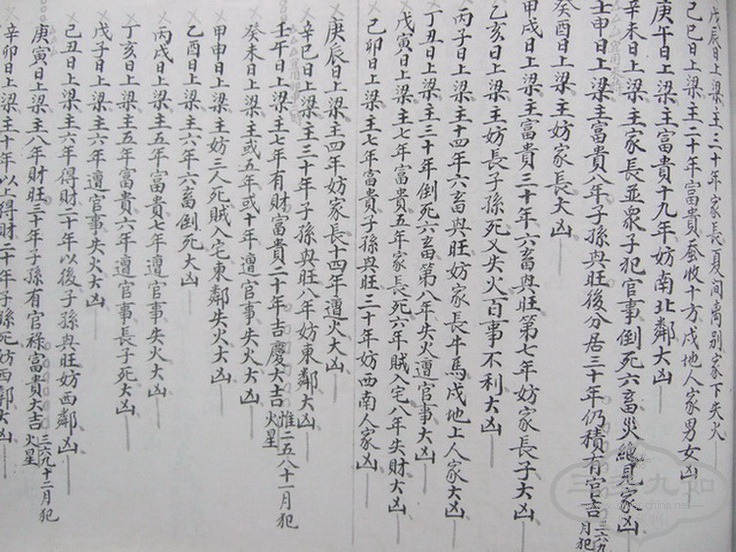 戊辰日上梁主二十年家長夏間离别家下失火
己巳日上梁主二十年富貴蚕收十方戌地人家男女凶
庚午日上梁主富貴十九年妨南北鄰大凶
辛未日上梁主家長並衆子犯官事倒死六畜災絶見家凶
壬申日上梁主富貴八年子孫與旺後分居三十年仍積有官吉三六九月犯
癸酉日上梁主妨家長大凶
甲戌日上梁主富貴三十年六畜與旺第七年妨家長子大凶
乙亥日上梁主妨長子孫死又失火百事不利大凶
丙子日上梁主十四年六畜與旺妨家長牛馬戌地上人家大凶
丁丑日上梁主三十年倒死六畜第八年失火遭官事大凶
戊寅日上梁主七年富貴五年家長死六年賊入宅八年失財大凶
己卯日上梁主七年富貴子孫與旺三十年妨西南人家凶
庚辰日上梁主四年妨家長十四年遭火大凶
辛巳日上梁主三十年子孫與旺八年妨東鄰大凶
壬午日上梁主七年有財富貴二十年吉慶大吉惟二五八十一月犯火星
癸未日上梁主或五年或十年遭官事失火大凶
甲申日上梁主妨三人死賊入宅東鄰失火大凶
乙酉日上梁主六年六畜倒死大凶
丙戌日上梁主五年富貴七年遭官事失火大凶
丁亥日上梁主五年富貴六年遭官事長子死大凶
戊子日上梁主六年遭官事失火大凶
己丑日上梁主六年得財二十年以後子孫與旺妨西鄰凶
庚寅日上梁主八年財旺三十年子孫有官祿富貴大吉三六九十二月犯火星
辛卯日上梁主十年以上得財二十年子孫死妨西鄰大凶